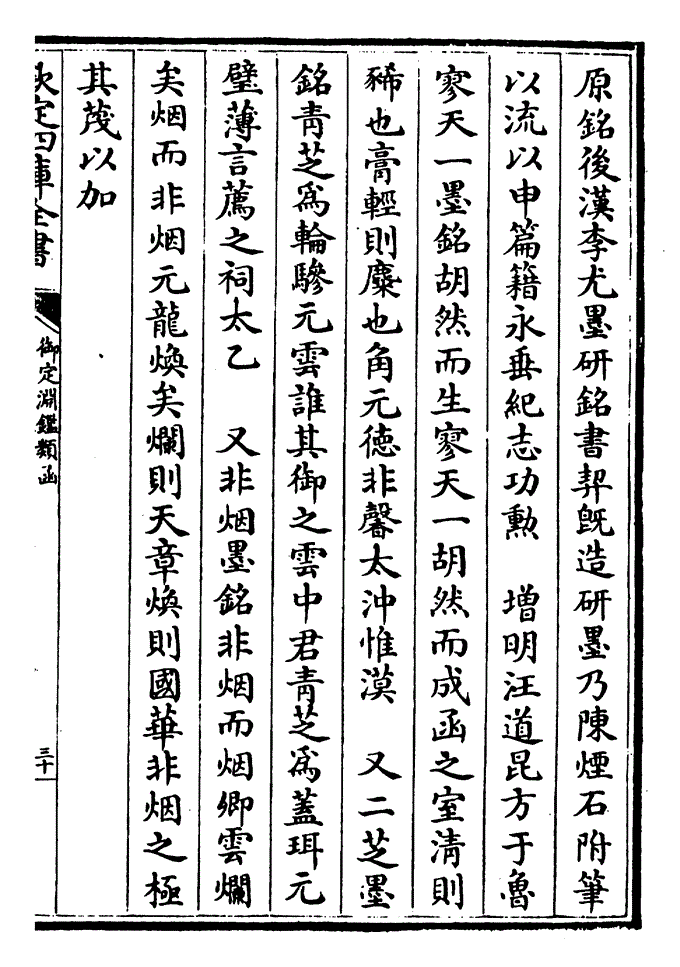 原銘後漢李尤墨研銘書契既造研墨乃陳煙石附筆
以流以申篇籍永垂紀志功勲　増明汪道昆方于魯
寥天一墨銘胡然而生寥天一胡然而成函之室清則
豨也膏輕則麋也角元徳非馨太沖惟漠　又二芝墨
銘青芝為輪驂元雲誰其御之雲中君青芝為蓋珥元
璧薄言薦之祠太乙　又非烟墨銘非烟而烟卿雲爛
矣烟而非烟元龍煥矣爛則天章煥則國華非烟之極
其蔑以加
欽定四庫全書
御定淵鑑類函
三十一